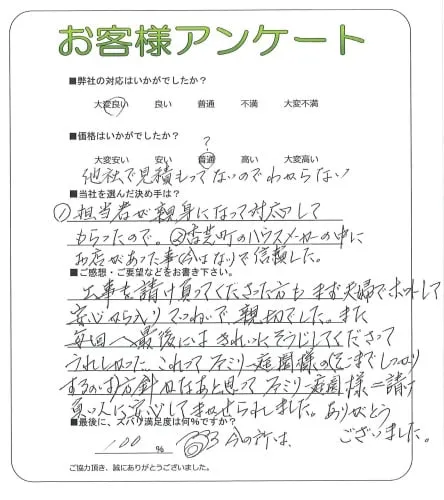 お客様アンケート
■弊社の対応はいかがでしたか？
大変良い 良い 普通 不満 大変不満
■価格はいかがでしたか？
？
大変安い 安い 普通 高い 大変高い
他社で見積もってないのでわからない
■当社を選んだ決め手は？
①担当者が親身になって対応して
もらったので。②香芝町のハウスメーカーの中に
お店があった事(今はなし)で信頼した。
■ご感想・ご要望などをお書き下さい。
工事を請け負ってくださった方も まず夫婦で
安心から入り 親切でした。また
毎回 最後には きれいにそうじしてくださって
うれしかった これって ファミリー庭園様の(そこまでしっかり
するのは)方針 なあと思って ファミリー庭園様＝請け
負い人に安心して まかせられました。ありがとう
ございました。
■最後に、ズバリ満足度は何％ですか？
100 ％ 今の所は、
ご協力頂き、誠にありがとうございました。